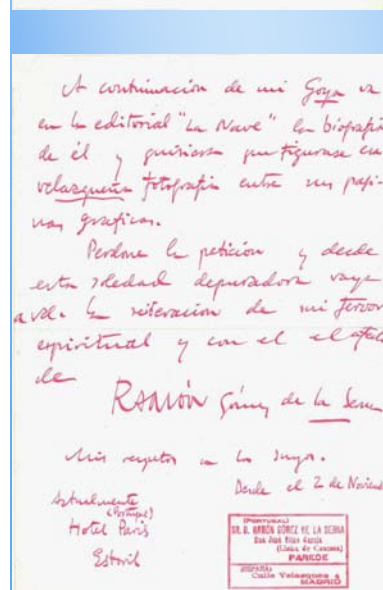 A continuación de mi Goya va
en la editorial "La Nave" la biografía
de él y quisiera que figurase esa
velazqueña fotografía entre sus pági-
nas graficas.
Perdone la petición y desde
esta soledad depuradora vaya
a vd. la reiteración de mi fervor
espiritual y con el el afecto
de
RAMÓN Gómez de la Serna
Mis respetos a los suyos.
Desde el 2 de Noviembre
Actualmente
(Portugal)
Hotel Paris
Estoril
(PORTUGAL)
SR. D. RAMÓN GÓMEZ DE LA SERNA
PAREDE
(ESPAÑA)
Calle Velazquez 4
MADRID